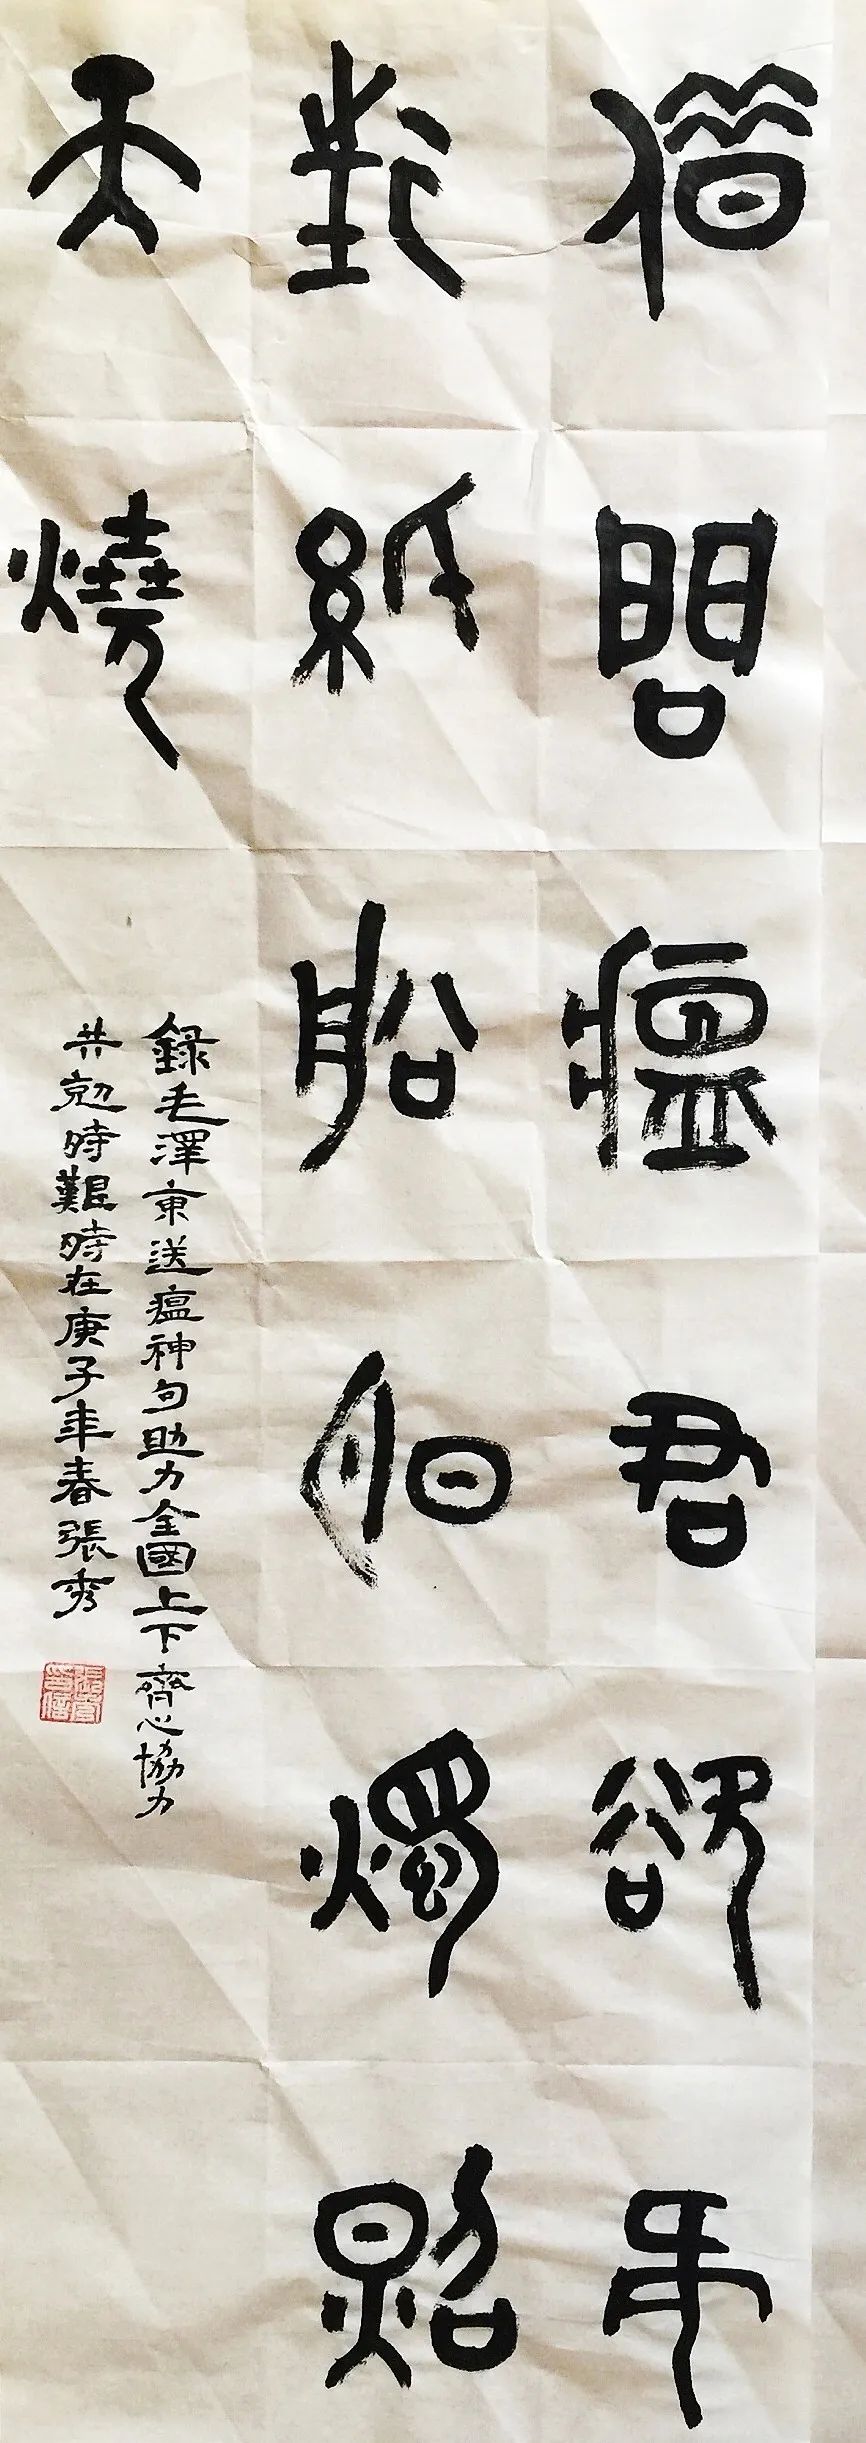 借問瘟君欲何
往紙船明燭照
天燒
錄毛澤東送瘟神句助力全國上下齊心協力
共勊時艱時在庚子年春張秀